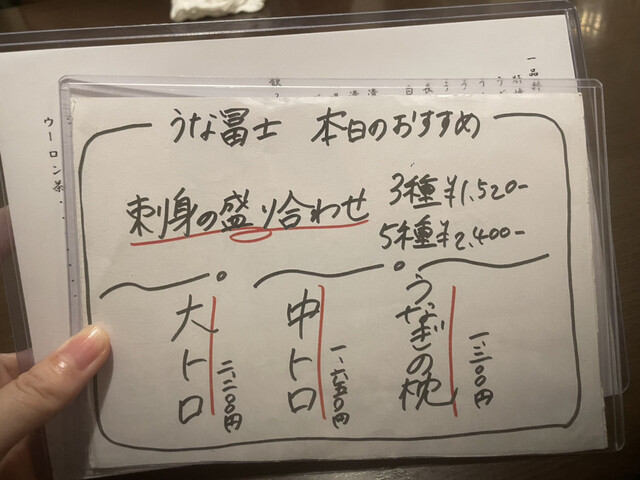 うな冨士 本日のおすすめ
刺身の盛り合わせ
3種¥1,520-
5種¥2,400-
うなぎの枕
一、二〇〇円
中トロ
一、六五〇円
大トロ
二、二〇〇円
一品料
ウーロン茶